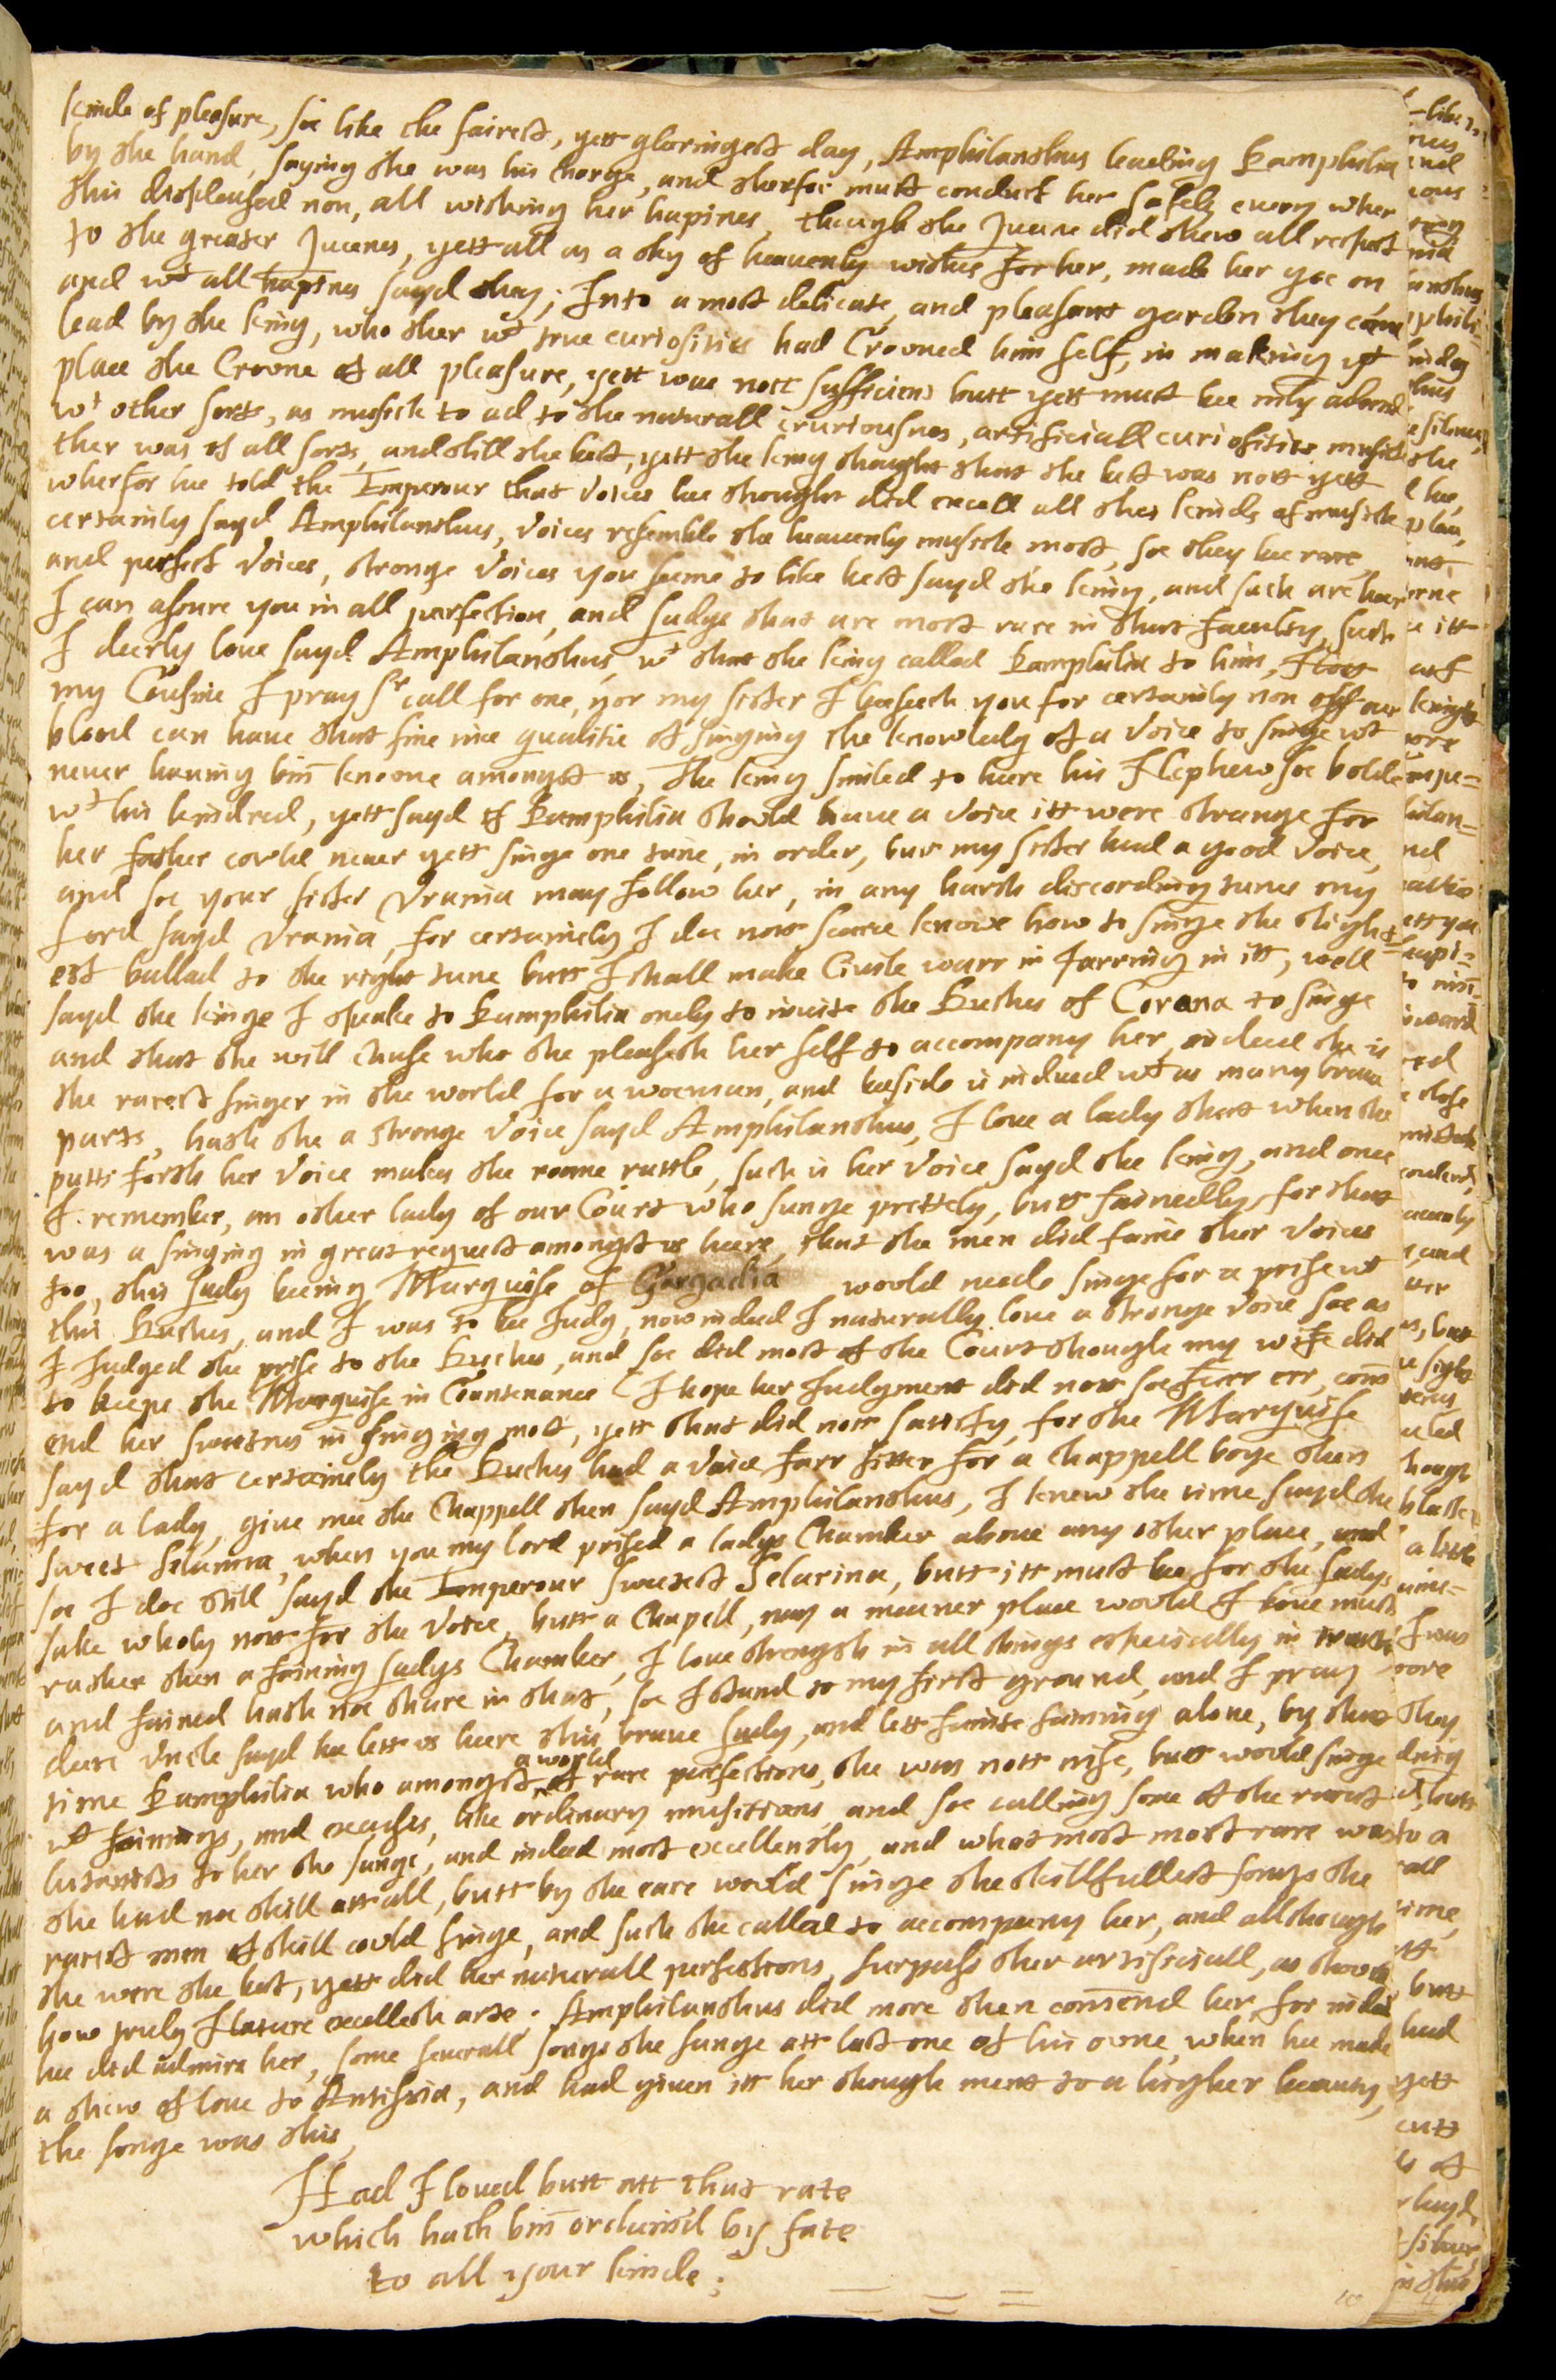 kinde of pleasure, soe like the fairest, yett gloringest day, Amphilanthus leading Pamphilia
by the hand, saying she was his charge, and therfor must conduct her safely every wher
this displeased non, all wishing her hapines, though the Juane did shew all respect
to the greater Jucanes, yett all as a sky of heavenly wishes for her, made her goe on
and wt all hapines sayd they; Into a most delicate, and pleasant garden they came
lead by the king, who ther wt true curiosities had Crowned him self, in making yt
place the Crowne of all pleasure, yett was nott sufficient butt yett must bee inly adornd
wt other sorts, as musick to ad to the naturall cruriousnes, artificiall curiositie musick
ther was of all sorts, and still the best, yett the king thought that the best was nott yett
wherfor hee told the Emperour that voices hee thought did excell all ther kinds of musick
certainly sayd Amphilanthus, voices resemble the heavenly musick most, soe they bee rare
and perfect voices, stronge voices you seeme to like best sayd the king, and such are heer
I can asure you in all perfection, and Ladys that are most rare in that faculty, such
I deerly love sayd Amphilanthus, wt that the king called Pamphilia to him, Nott
my Cousine I pray Sr call for one, nor my sister I beeseech you for certainly non off our
blood can have that fine nice qualitie of singing the knowledg of a voice to singe wt
never having binn knowne amongst us, The king smiled to heere his Nephew soe bolde
wt his kindred, yett sayd if Pamphilia should have a voice itt were strange for
her father could never yett singe one tune, in order, but my sister had a good voice,
and soe your sister Urania may follow her, in any harsh discording tunes my
Lord sayd Urania, for certainely I doe nott scarce knowe how to singe the slight=
est ballad to the right tune butt I shall make Civile warr in Jarring in itt, well
sayd the kinge I speake to Pamphilia onely to invite the Duches of Corana to singe
and that she will chuse who she pleaseth her self to accompany her, indeed she is
the rarest singer in the world for a woeman, and beeside is indued wt as many brave
parts, hath she a stronge voice sayd Amphilanthus, I love a lady that when she
putts forth her voice makes the roome rattle, such is her voice sayd the king, and once
I remember, an other lady of our Court who sunge prettely, butt fainedly, for that
was a singing in great request amongst us heere, that the men did faine ther voices
too, this Lady beeing Marquise of Gargadia would needs singe for a prise wt
this Duches, and I was to bee Judg, now indeed I naturally love a stronge voice soe as
I Judged the prise to the Duches, and soe did most of the Court though my wife did
to keepe the Marquise in Countenance (I hope her Judgment did nott soe farr err) com̄
end her sweetnes in singing most, yett that did nott sattisfy, for the Marquise
sayd that certainely the Duches had a voice farr fitter for a chappell boye then
for a lady, give mee the Chappell then sayd Amphilanthus, I knew the time sayd the
sweet Selarina, when you my lord prised a ladys Chamber above any other place, and
soe I doe still sayd the Emperour sweetest Selarina, butt itt must bee for the Ladys
sake wholy nott for the voice, butt a Chapell, nay a meaner place would I love much
rather then a faining Ladys Chamber, I love strength in all things especially in
and fained hath noe share in that, soe I stand to my first ground, and I pray
deere Uncle sayd hee lett us heere this brave Lady, and lett fainte faining alone, by that
time Pamphilia who amongst a world of rare perfections, she was nott nise, butt would singe
wtt fainings, and excuses, like ordinary musitians, and soe calling some of the rarest
lutanists to her she sunge, and indeed most excellently, and what most most rare was
she had noe skill att all, butt by the eare would singe the skillfullest songs the
rarest men of skill could singe, and such she called to accompany her, and allthough
she were the best, yett did her naturall perfections, surpass ther artificiall, as showing
how truly Nature excelleth arte; Amphilanthus did more then com̄end her, for indeed
hee did admire her, some severall songs she sunge att last one of his owne, when hee made
a shew of love to Antissia, and had given itt her though ment to a higher beauty,
the songe was this,
Had I loved butt att that rate
which hath binn ordain'd by fate
to all your kinde;